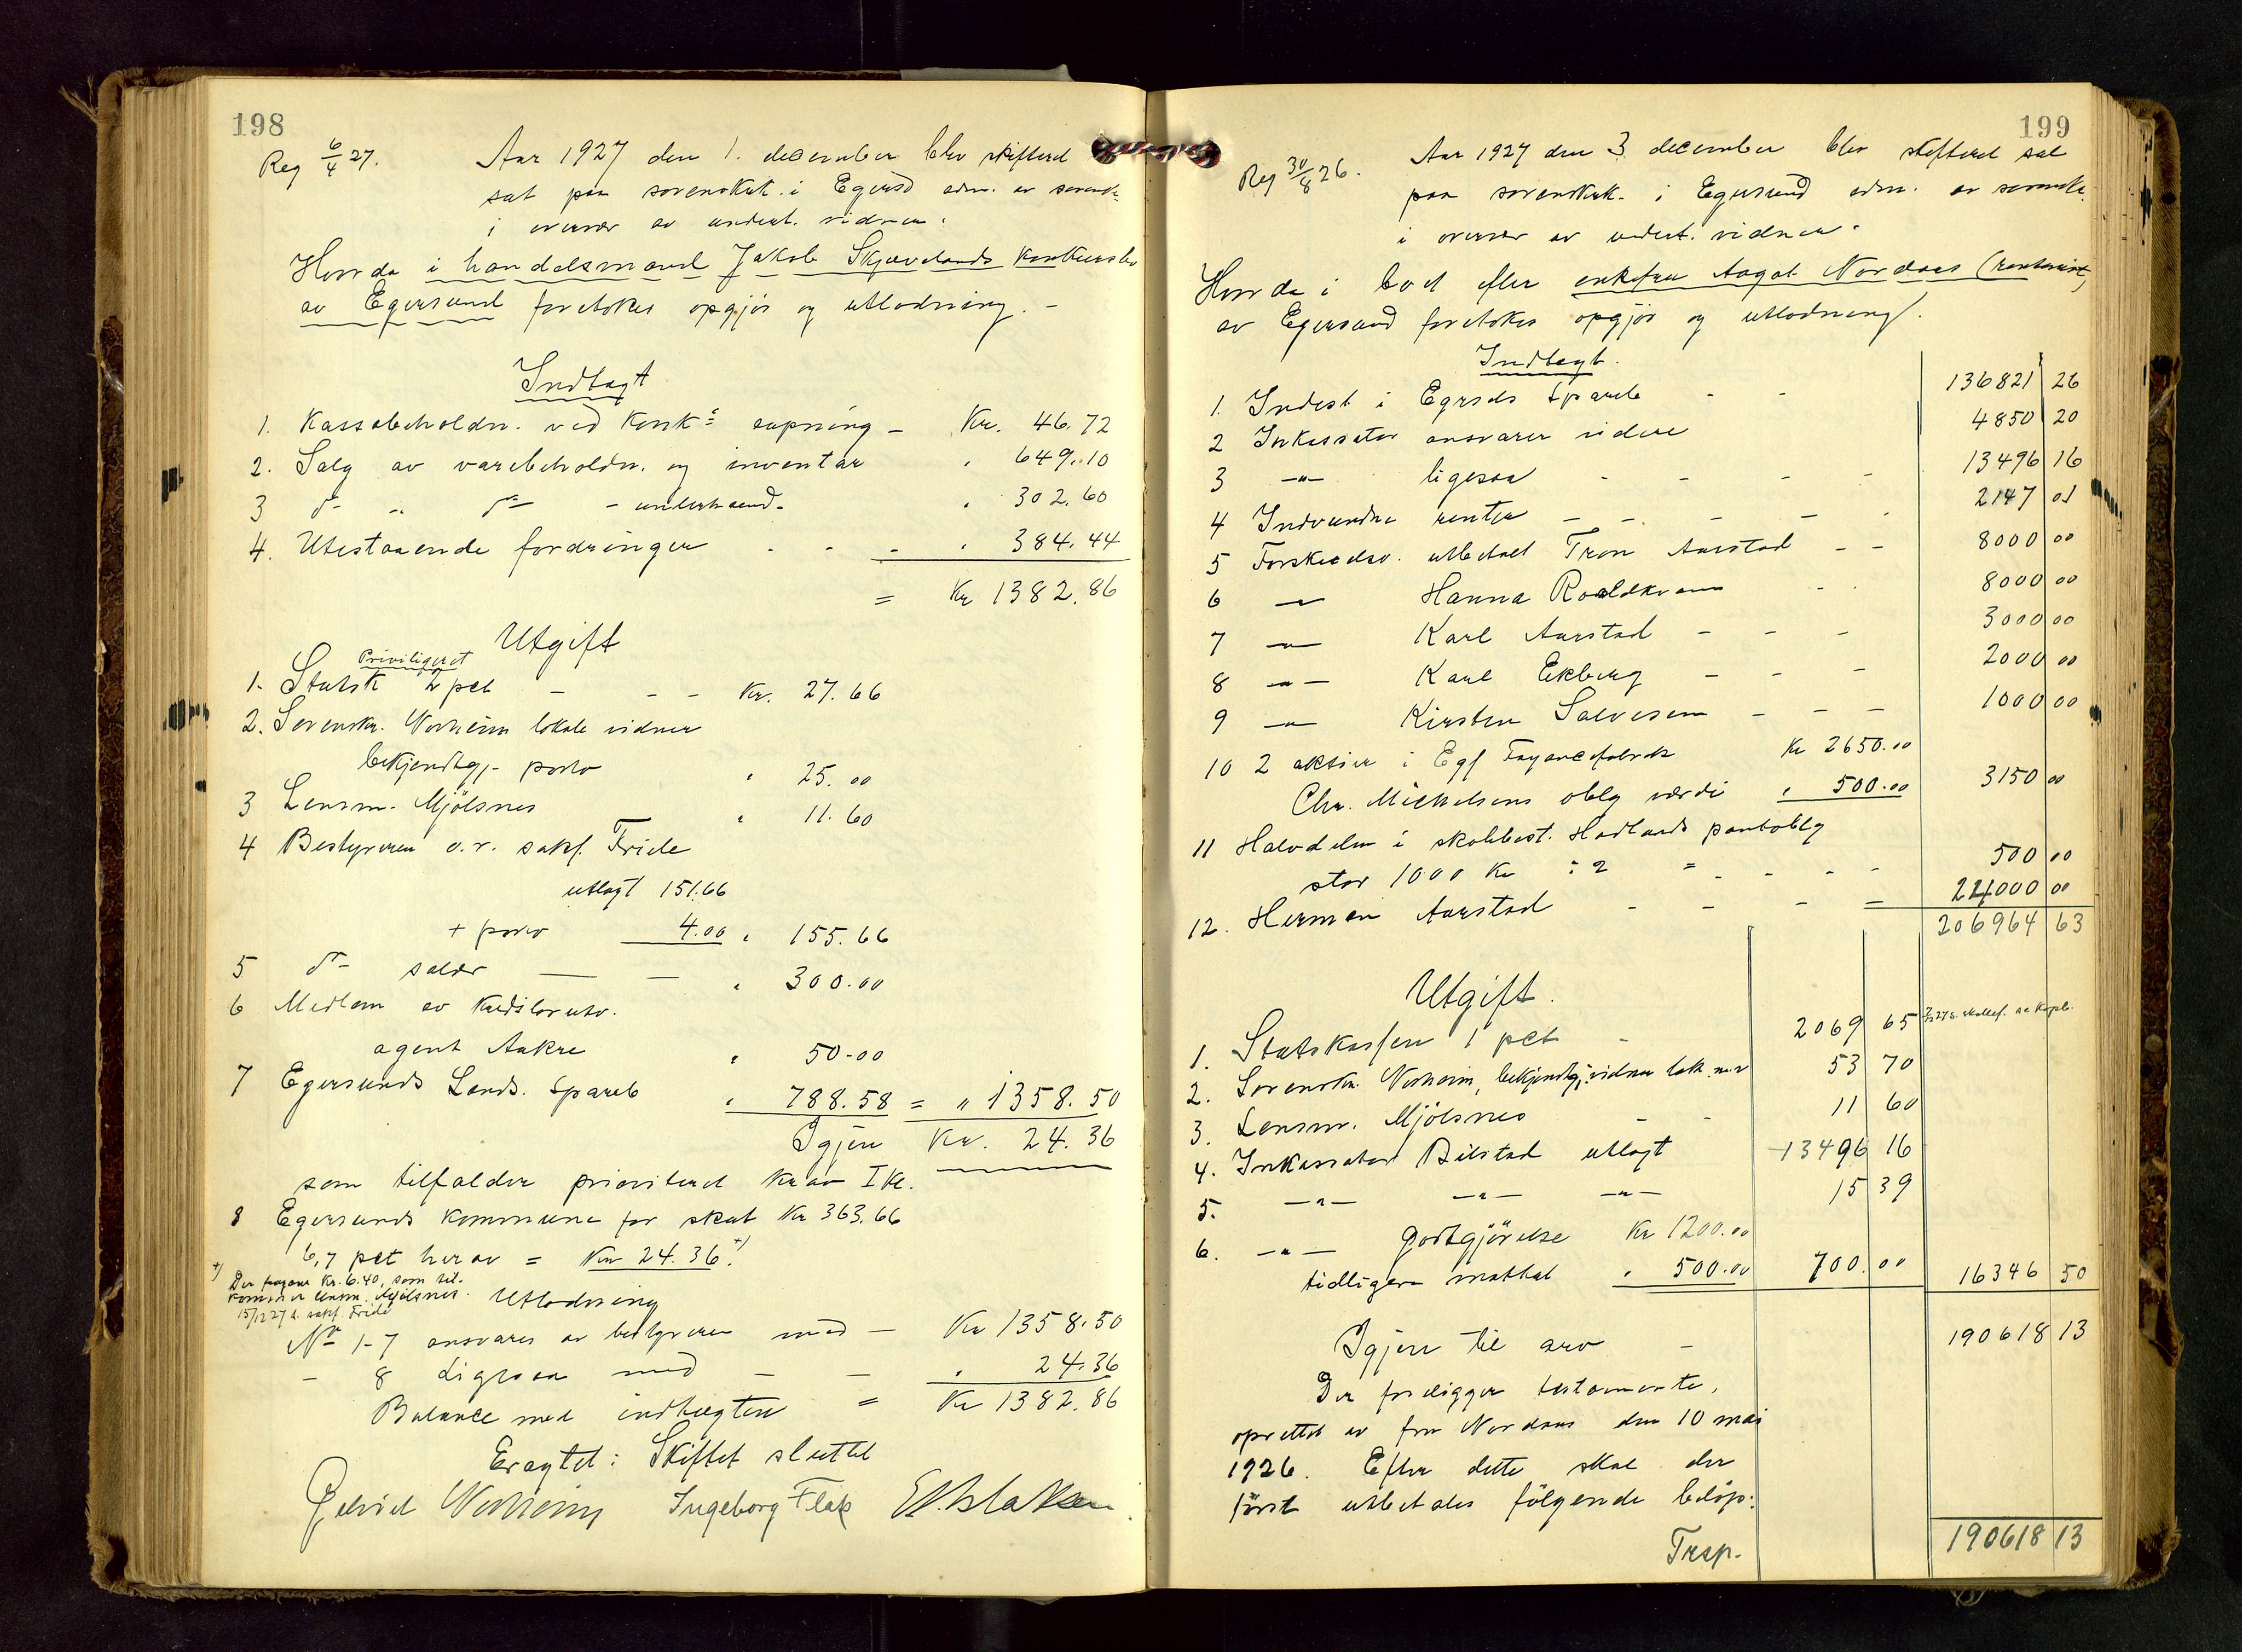 198
Reg 6/4 27.
Aar 1927 den 1. december blev skifteret
sat paa sorenskrk. i Egersd adm. av sorensk.
i overvær av undert. vidner.
Hvor da i handelsmand Jakob Skjævelands konkursbo
av Egersund foretokes opgjör og utlodning. -
Indtægt
1. Kassabeholdn. ved konk.s aapning - Kr. 46.72
2. Salg av varebeholdn. og inventar " 649.10
3 do " do - underhaand. " 302.60
4. Utestaaende fordringer - - - " 384.44
= Kr 1382.86
Utgift
Priviligeret
1. Statsk 2 pct - - - Kr. 27.66
2. Sorenskr. Norheim lokale vidner
bekjendtgj.- porto " 25.00
3 Lensm. Mjölsnes " 11.60
4 Bestyreren o.r. sakf. Fride
utlagt 151.66
+ porto 4.00 " 155.66
5 do salær — — " 300.00
6 Medlem av kreditorutv.
agent Aakre " 50.00
7 Egersunds Lands. Spareb " 788.58 = " 1358.50
Igjen Kr. 24.36
som tilfalder prioriteret krav I kl.
8 Egersunds kommune for skat Kr 363.66
6,7 pct herav = Kr 24.36 +)
+) Der fragaar Kr. 6.40, som til-
kommer lensm. Mjölsnes.
15/12 27 s. sakf. Fride
Utlodning
No 1-7 ansvares av bestyreren med - Kr 1358.50
- 8 Ligesaa med - - " 24.36
Balance med indtægten = Kr 1382.86
Eragtet: Skiftet sluttet
Norheim Ingeborg Flak
199
Reg 30/8 26.
Aar 1927 den 3 december blev skifteret sat
paa sorenskrk. i Egersund adm. av sorenskr.
i overvær av undert. vidner.
Hvor da i boet efter enkefru Aagot Nordaas (rentenist)
av Egersund foretokes opgjör og utlodning.
Indtægt.
1. Indest i Egrsds Spareb - - 136821 26
2 Inkassator ansvarer videre 4850 20
3 -"- ligesaa - - - - 13496 16
4 Indvundne renter - - - - 2147 01
5 Forskudsv. utbetalt Tron Aarstad - - 8000 00
6 -"- Hanna Roaldkvam - - 8000 00
7 -"- Karl Aarstad - - - 3000 00
8 -"- Karl Ekberg - - - 2000 00
9 -"- Kirsten Salvesen - - - 1000 00
10 2 aktier i Egs Fayancefabrik Kr 2650.00
Chr. Michelsens oblg værdi " 500.00 3150 00
11 Halvdelen i skolebest. Hadlands pantoblg
stor 1000 Kr : 2 = - - - - 500 00
12. Herman Aarstad - - - = 24000 00
206964 63
Utgift.
1. Statskassen 1 pct - 2069 65
2. Sorenskr. Norheim, bekjendtgj. vidner lok. m.v 53 70
3. Lensm. Mjölsnes - - 11 60
4. Inkassator Bilstad utlagt 13496 16
5. -"- -"- -"- 15 39
6. -"- godtgjörelse Kr 1200.00
tidligere mottat " 500.00 700.00 16346 50
Igjen til arv - 190618 13
Der foreligger testamente,
oprettet av fru Nordaas den 10 mai
1926. Efter dette skal der
först utbetales fölgende belöp:
Trsp. 190618 13